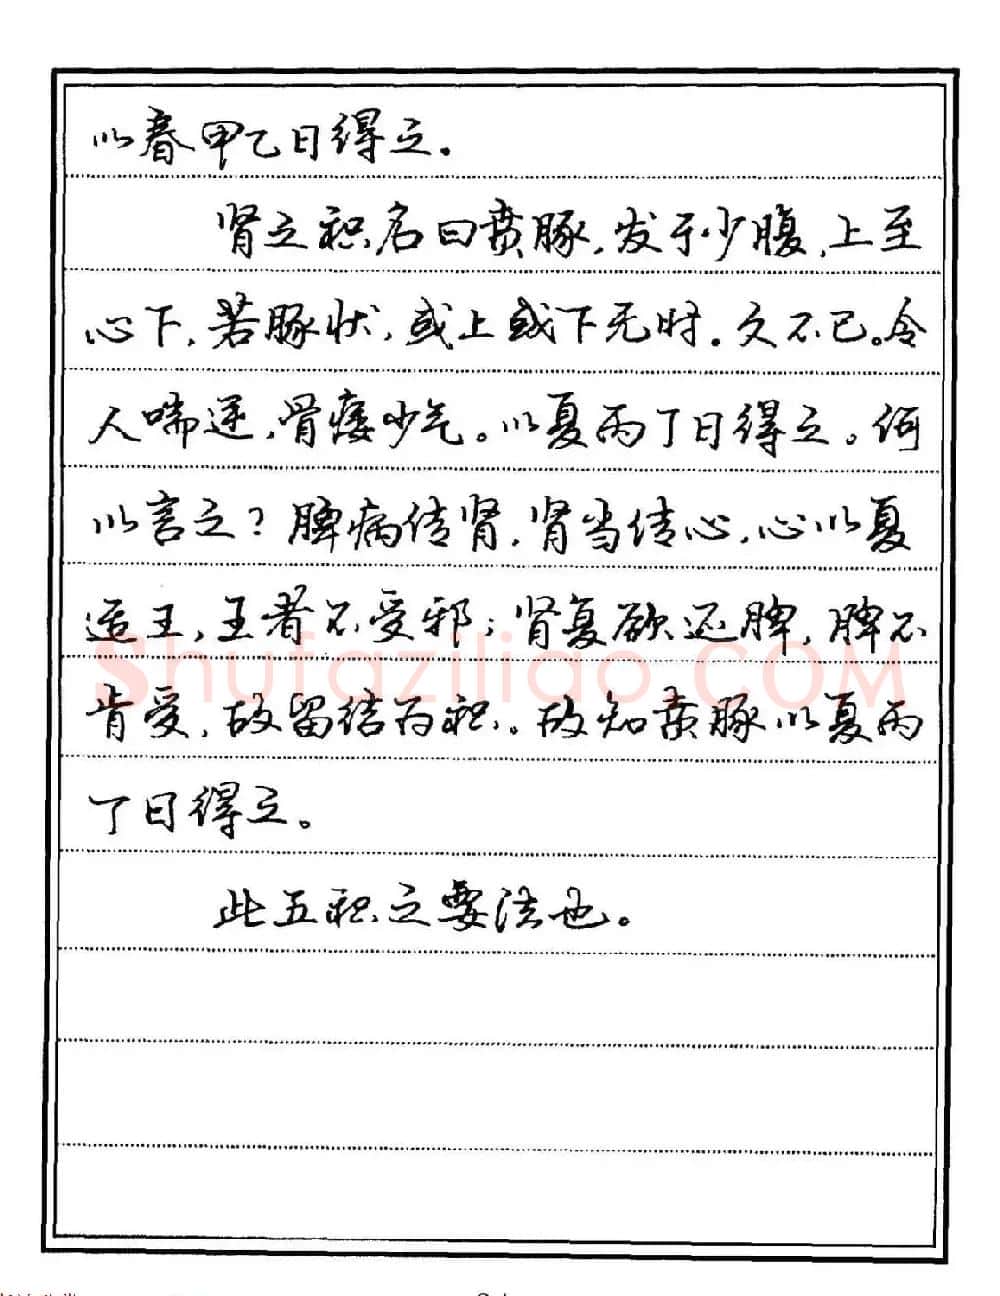 以春甲乙日得之.
肾之积,名曰贲豚,发于少腹,上至
心下,若豚状,或上或下无时.久不已。令
人喘逆,骨痿少气。以夏丙丁日得之。何
以言之?脾病传肾,肾当传心,心以夏
适王,王者不受邪;肾复欲还脾,脾不
肯受,故留结为积。故知贲豚以夏丙
丁日得之。
此五积之要法也。
Shufaziliao.COM